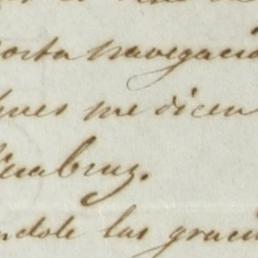 corta navegació
pues me dicen
Veracruz.
ndole las graci